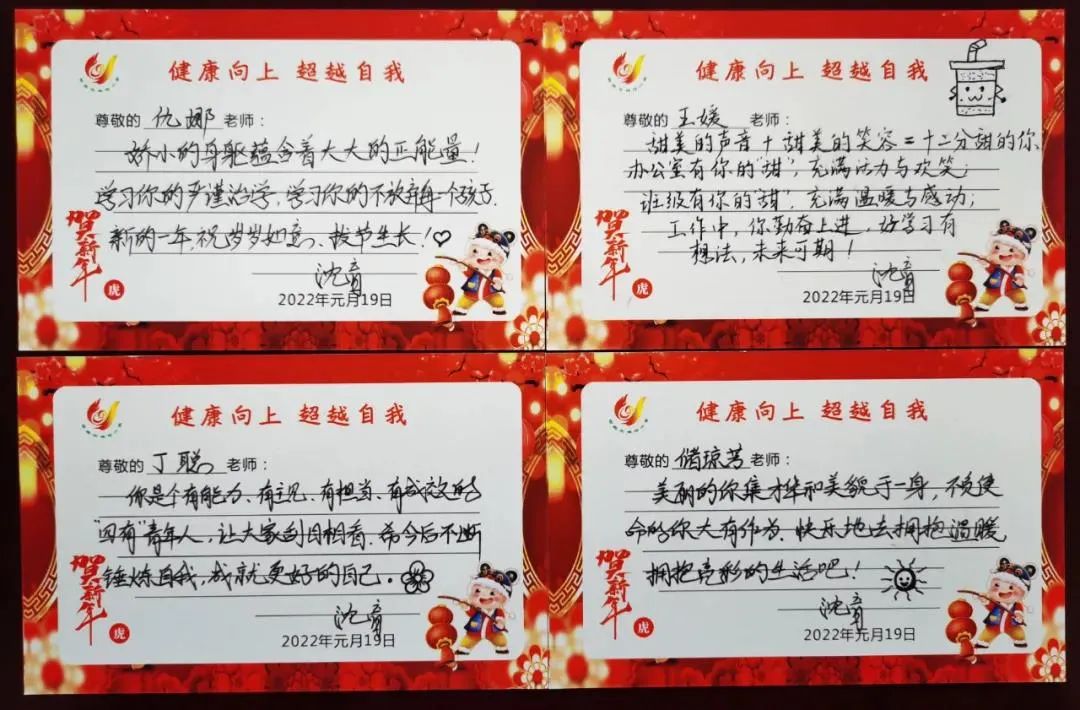 健康向上 超越自我
尊敬的 仇娜 老师:
娇小的身躯蕴含着大大的正能量!
学习你的严谨治学,学习你的不放弃每一个孩子.
新的一年,祝岁岁如意、拔节生长!
沈育
2022年元月19日
贺新年
虎
健康向上 超越自我
尊敬的 王媛 老师:
甜美的声音+甜美的笑容=十二分甜的你
办公室有你的"甜",充满活力与欢笑;
班级有你的"甜",充满温暖与感动;
工作中,你勤奋上进,好学习有
想法,未来可期!
沈育
2022年元月19日
贺新年
虎
健康向上 超越自我
尊敬的 丁聪 老师:
你是个有能力、有主见、有担当、有成效的
"四有"青年人,让大家刮目相看.希今后不断
锤炼自我,成就更好的自己.
沈育
2022年元月19日
贺新年
虎
健康向上 超越自我
尊敬的 储琼芳 老师:
美丽的你集才华和美貌于一身,不负使
命的你大有作为.快乐地去拥抱温暖
拥抱亮彩的生活吧!
沈育
2022年元月19日
贺新年
虎